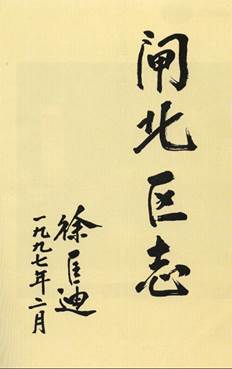 闸北区志
徐匡迪
一九九七年二月